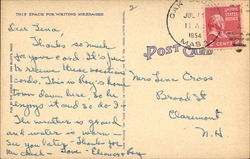 THIS SPACE FOR WRITING MESSAGES
2
Dear Lena,
Thanks so much
for your card. It's fun
to receive these vacation
cards. This is Ben's home
town down here. So he
enjoys it and so do I.
The weather is grand
and water is warm -
See you later - Thanks for
check - Love - Eleanor
POST CARD
1954
MASS
CENTS
Mrs Lena Cross
Broad St
Claremont
N.H